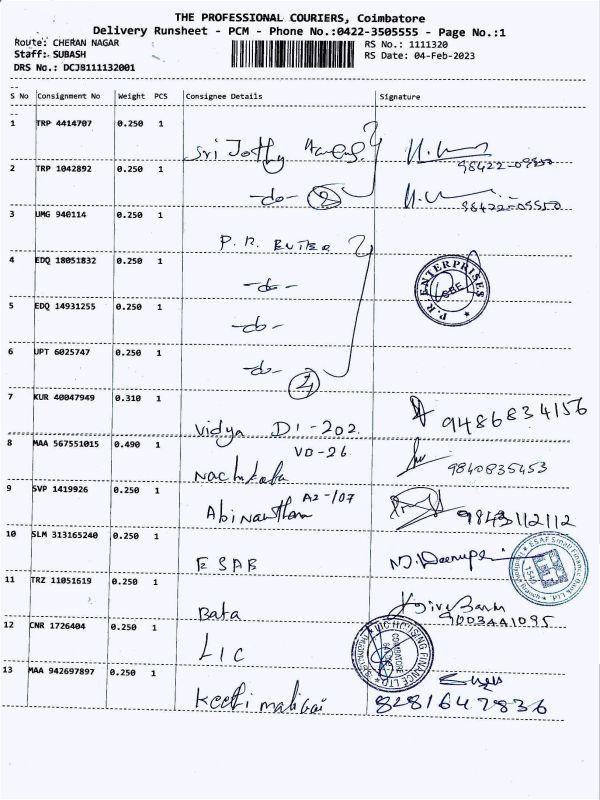 THE PROFESSIONAL COURIERS, Coimbatore
Delivery Runsheet - PCM - Phone No.:0422-3505555 - Page No.:1
Route: CHERAN NAGAR RS No.: 1111320
Staff: SUBASH RS Date: 04-Feb-2023
DRS No.: DCJB111132001
S No Consignment No Weight PCS Consignee Details Signature
1 TRP 4414707 0.250 1 Sri Jothy
2 TRP 1042892 0.250 1 -do- 2
3 UMG 940114 0.250 1 P.R. ENTER
4 EDQ 18051832 0.250 1 -do- P.R ENTERPRISES
5 EDQ 14931255 0.250 1 -do-
6 UPT 6025747 0.250 1 -do- 4
7 KUR 40047949 0.310 1 Vidya D1-202 9486834156
8 MAA 567551015 0.490 1 VD-26 9840835453
9 SVP 1419926 0.250 1 A2-107 9843112112
10 SLM 313165240 0.250 1 ESAF Small Finance Bank Ltd.
11 TRZ 11051619 0.250 1 Bata
12 CNR 1726404 0.250 1 LIC LIC HOUSING FINANCE LTD COIMBATORE
13 MAA 942697897 0.250 1 8281647836